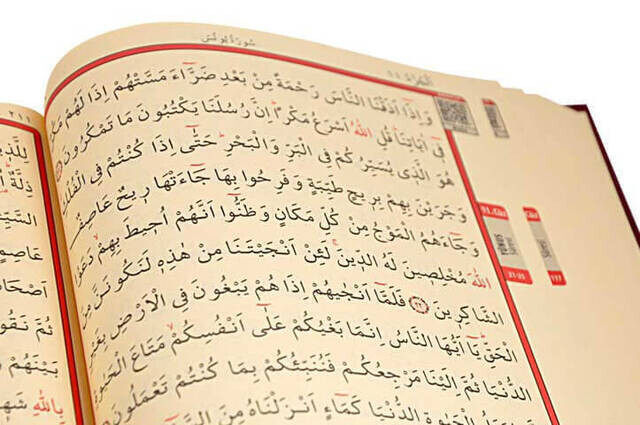 سورة يونس
الجزء ١١
وَاِذَٓا اَذَقْنَا النَّاسَ رَحْمَةً مِنْ بَعْدِ ضَرَّٓاءَ مَسَّتْهُمْ اِذَا لَهُمْ
ف۪ٓي اٰيَاتِنَاۜ قُلِ اللّٰهُ اَسْرَعُ مَكْرًاۜ اِنَّ رُسُلَنَا يَكْتُبُونَ مَا تَمْكُرُونَ
هُوَ الَّذ۪ي يُسَيِّرُكُمْ فِي الْبَرِّ وَالْبَحْرِۜ حَتّٰٓى اِذَا كُنْتُمْ فِي الْفُلْكِ
وَجَرَيْنَ بِهِمْ بِر۪يحٍ طَيِّبَةٍ وَفَرِحُوا بِهَا جَٓاءَتْهَا ر۪يحٌ عَاصِفٌ
وَجَٓاءَهُمُ الْمَوْجُ مِنْ كُلِّ مَكَانٍ وَظَنُّٓوا اَنَّهُمْ اُح۪يطَ بِهِمْۙ دَعَوُا
اللّٰهَ مُخْلِص۪ينَ لَهُ الدّ۪ينَۚ لَئِنْ اَنْجَيْتَنَا مِنْ هٰذِه۪ لَنَكُونَنَّ مِنَ
الشَّاكِر۪ينَ ﴿٢٢﴾ فَلَمَّٓا اَنْجٰيهُمْ اِذَا هُمْ يَبْغُونَ فِي الْاَرْضِ بِغَيْرِ
الْحَقِّۜ يَٓا اَيُّهَا النَّاسُ اِنَّمَا بَغْيُكُمْ عَلٰٓى اَنْفُسِكُمْۙ مَتَاعَ الْحَيٰوةِ
الدُّنْيَاۘ ثُمَّ اِلَيْنَا مَرْجِعُكُمْ فَنُنَبِّئُكُمْ بِمَا كُنْتُمْ تَعْمَلُونَ
الْحَيٰوةِ الدُّنْيَا كَمَٓاءٍ اَنْزَلْنَاهُ مِنَ
91. Gün
Gün
YÛNUS
Sûresi
21-25
117
٢١١
لِلَّذ۪ينَ
ذِلَّةٌ
السَّيِّ
عَاصِمٍ
اَصْحَابُ
ثُمَّ نَقُولُ
بَيْنَهُمْ
بِاللّٰهِ شَه۪